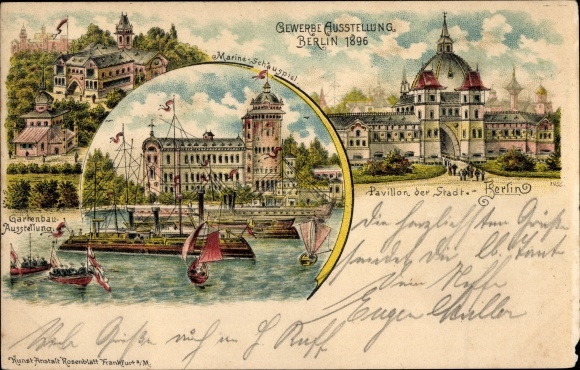 GEWERBE AUSSTELLUNG
BERLIN 1896
Marine-Schauspiel.
Pavillon der Stadt.-Berlin
Gartenbau-
Ausstellung.
Die herzlichsten Grüße
sendet der lb. Tante
Dein Neffe
Eugen
Grüße auch an H
Kunst-Anstalt Rosenblatt Frankfurt a/M.